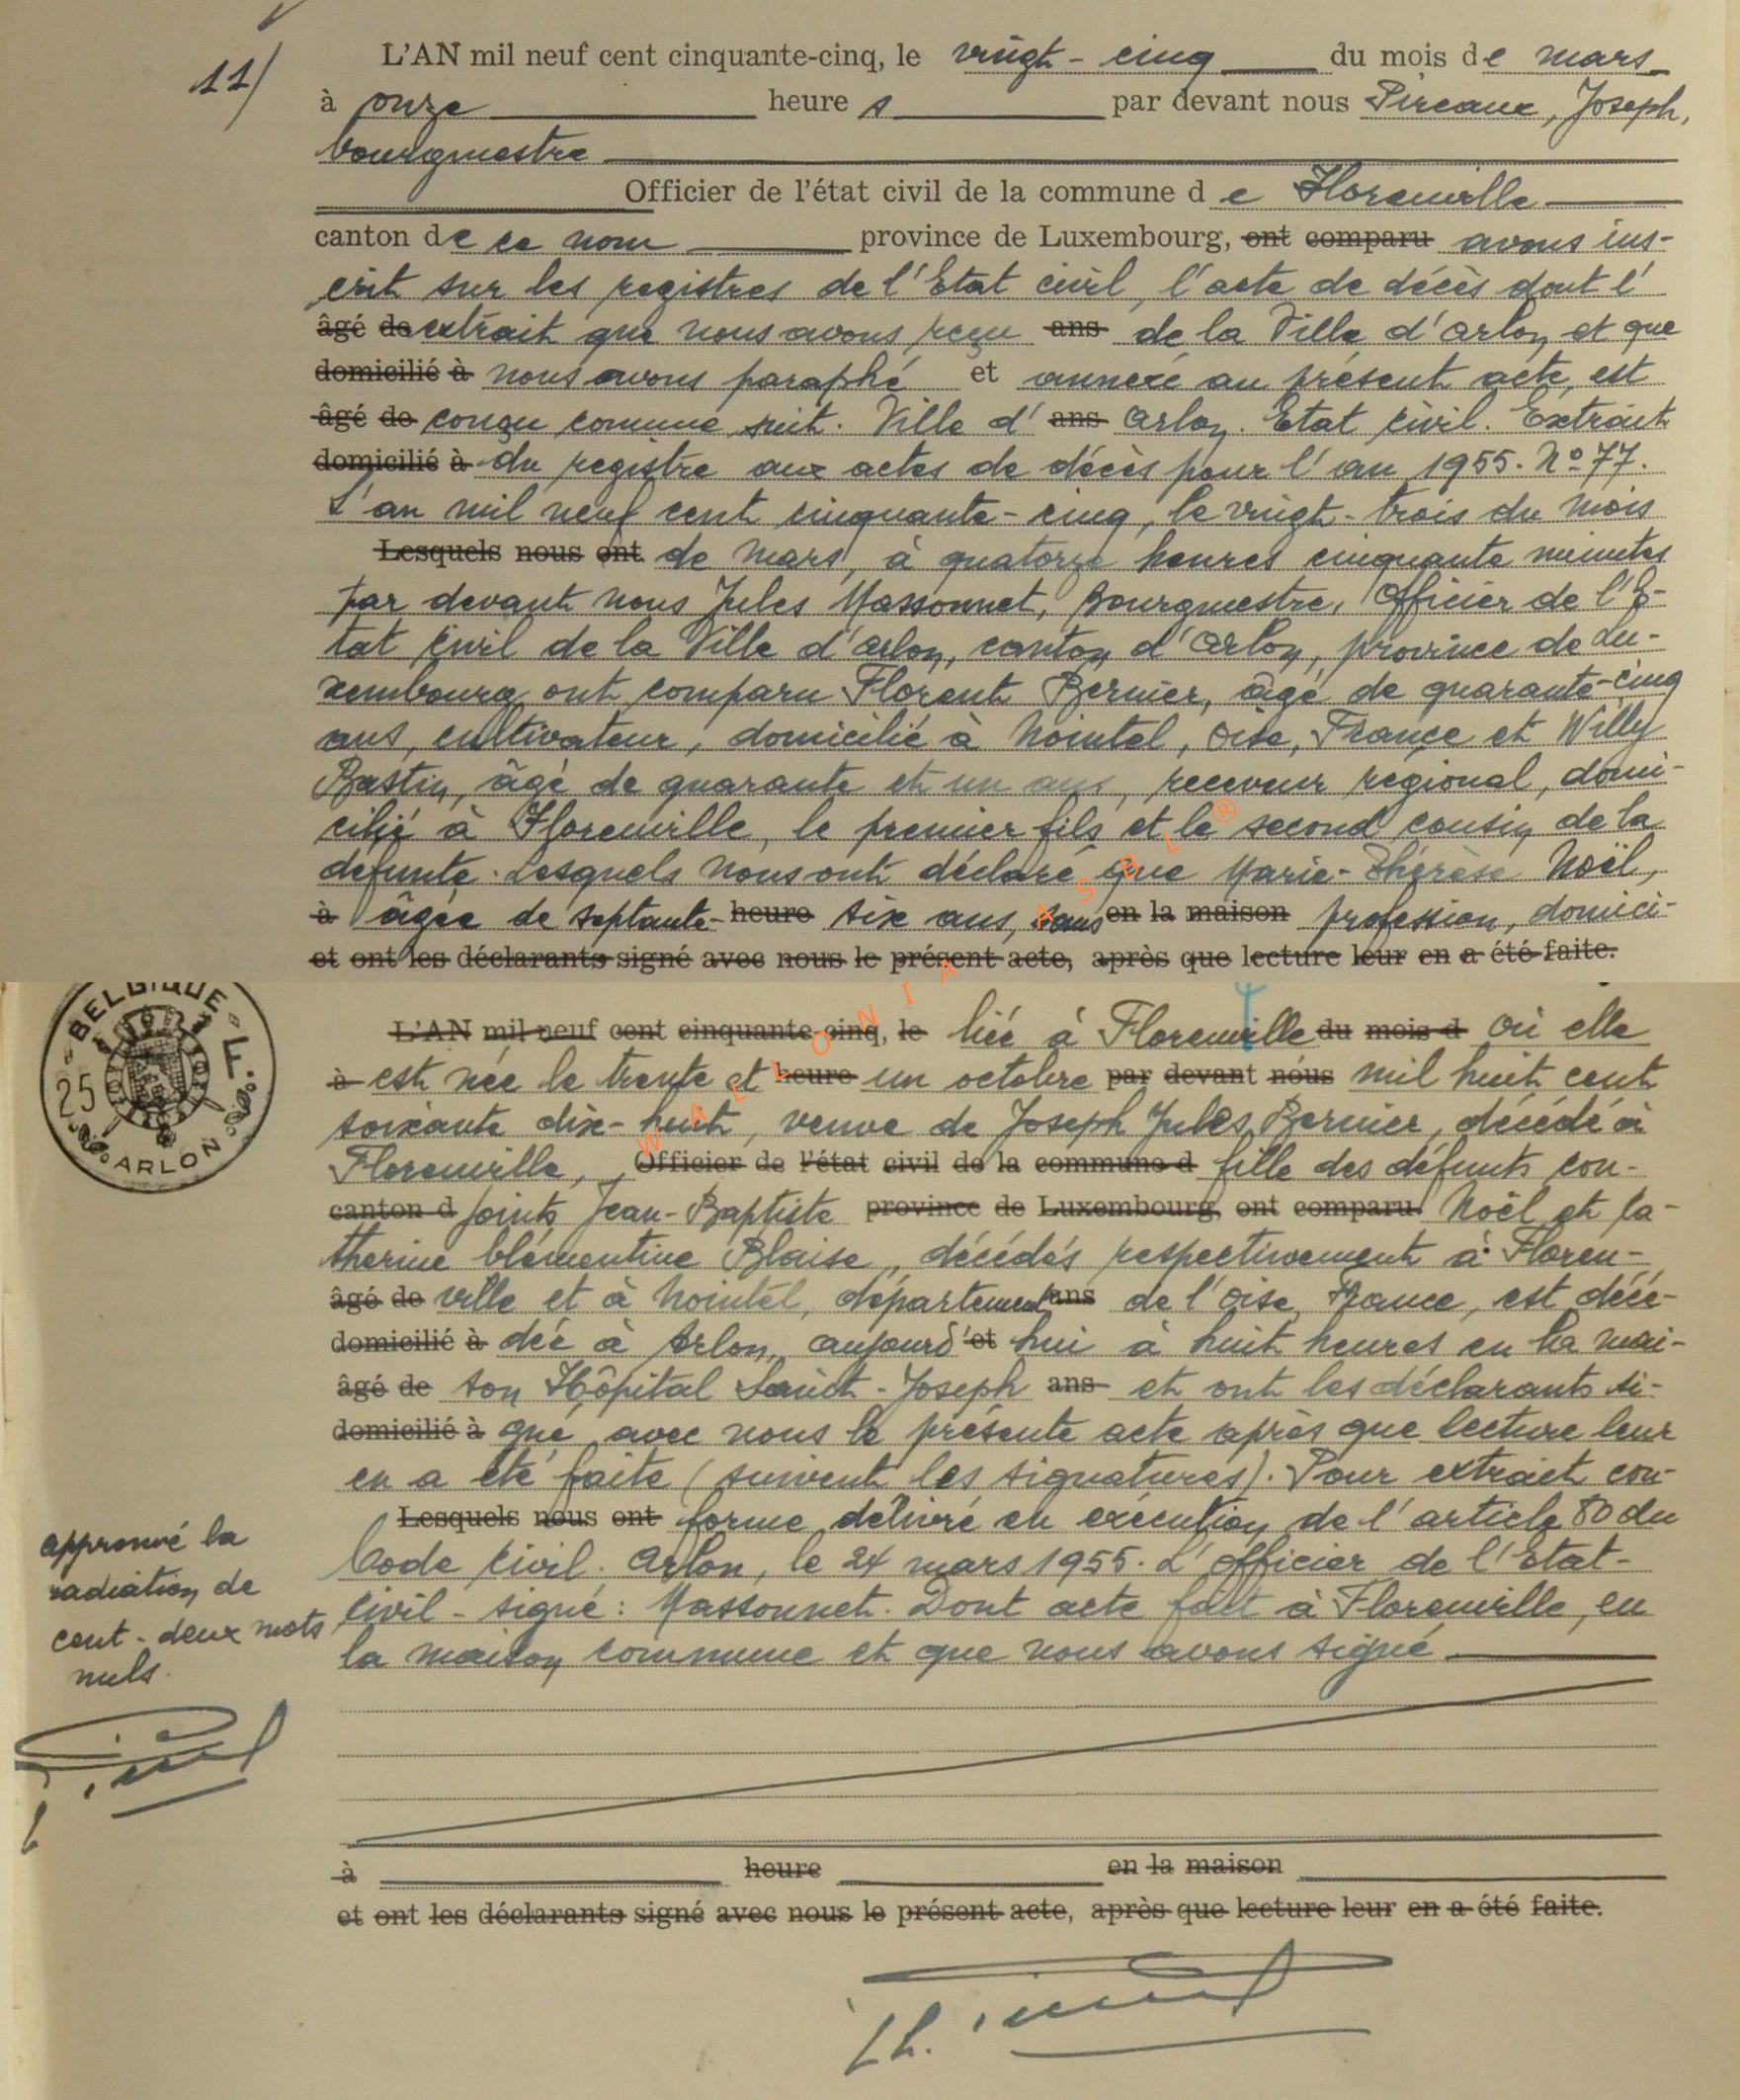 11/
L'AN mil neuf cent cinquante-cinq, le vingt-cinq du mois de mars
à onze heures par devant nous Pireaux, Joseph,
bourgmestre
Officier de l'état civil de la commune de Florenville
canton de ce nom province de Luxembourg, ont comparu avons ins-
crit sur les registres de l'Etat civil, l'acte de décès dont l'
âgé de extrait que nous avons reçu ans de la Ville d'Arlon et que
domicilié à nous avons paraphé et annexé au présent acte, est
âgé de conçu comme suit. Ville d' ans Arlon. Etat civil. Extrait
domicilié à du registre aux actes de décès pour l'an 1955. N° 77.
L'an mil neuf cent cinquante-cinq, le vingt-trois du mois
Lesquels nous ont de Mars, à quatorze heures cinquante minutes
par devant nous Jules Massonnet, Bourgmestre, Officier de l'E-
tat Civil de la Ville d'Arlon, canton d'Arlon, province de Lu-
xembourg ont comparu Florent Bernier, âgé de quarante-cinq
ans, cultivateur, domicilié à Nointel, Oise, France et Willy
Bastin, âgé de quarante et un ans, receveur régional, domi-
cilié à Florenville, le premier fils et le second cousin de la
défunte. Lesquels nous ont déclaré que Marie-Thérèse Noël,
à âgée de septante- heure six ans, sans en la maison profession, domici-
et ont les déclarants signé avec nous le présent acte, après que lecture leur en a été faite.
BELGIQUE - F.
25
ARLON
L'AN mil neuf cent cinquante-cinq, le liée à Florenville du mois d où elle
à est née le trente et heure un octobre par devant nous mil huit cent
soixante dix-huit, veuve de Joseph Jules Bernier, décédé à
Florenville, Officier de l'état civil de la commune d fille des défunts con-
canton d joints Jean-Baptiste province de Luxembourg, ont comparu Noël et Ca-
therine Clémentine Blaise, décédés respectivement à Floren-
âgé de ville et à Nointel, département ans de l'Oise, France, est décé-
domicilié à dée à Arlon, aujourd' et hui à huit heures en la mai-
âgé de son Hôpital Saint-Joseph ans et ont les déclarants si-
domicilié à gné avec nous le présente acte après que lecture leur
en a été faite (suivent les signatures). Pour extrait con-
Lesquels nous ont forme délivré en exécution de l'article 80 du
Code Civil. Arlon, le 24 mars 1955. L'Officier de l'Etat-
Civil - signé : Massonnet. Dont acte fait à Florenville, en
la maison commune et que nous avons signé
approuvé la
radiation de
cent-deux mots
nuls.
à heure en la maison
et ont les déclarants signé avec nous le présent acte, après que lecture leur en a été faite.
WALLONIA ASBL ®